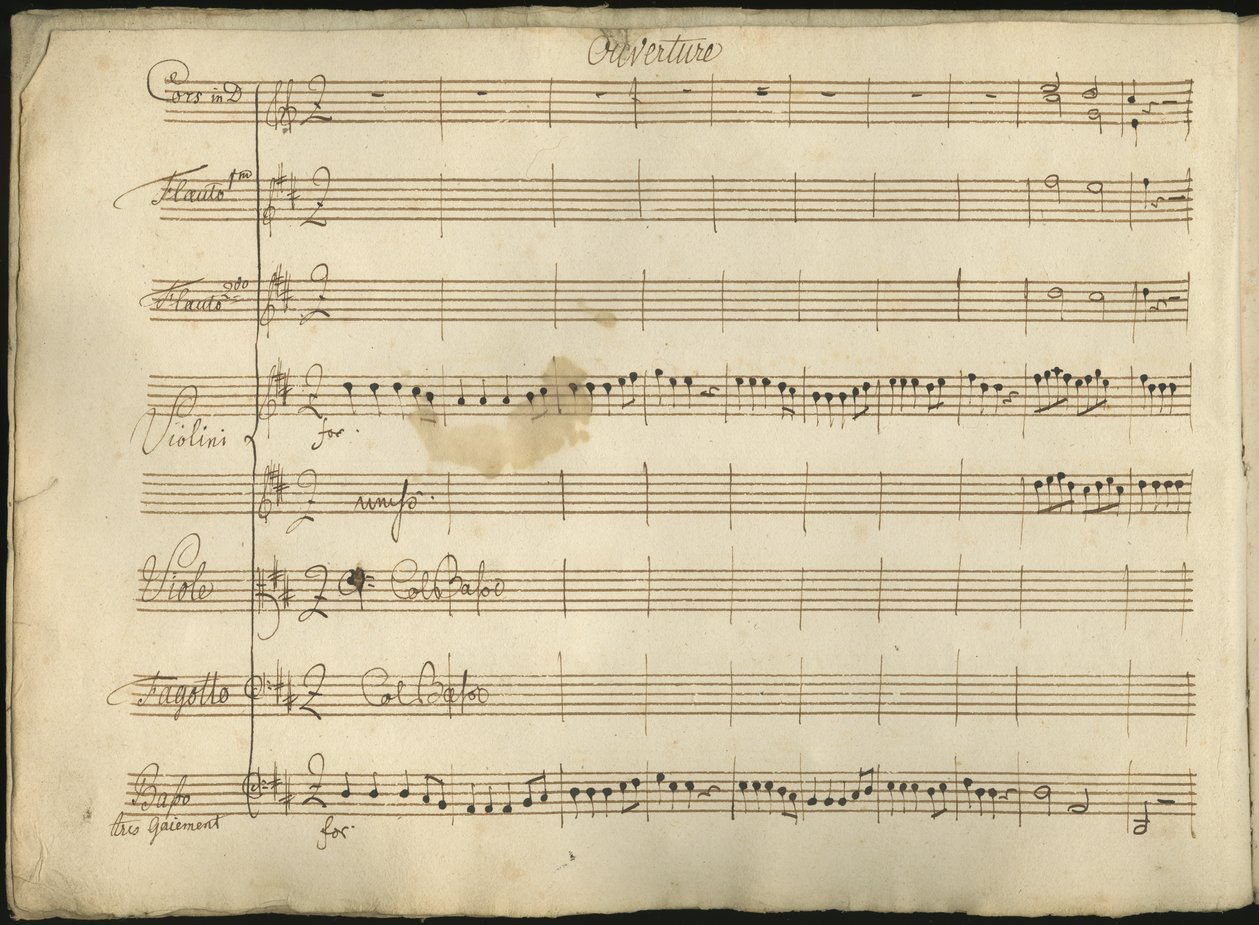 Ouverture
Cors in D
2
Flauto 1mo
2
Flauto 2do
2
Violini
2
for.
2
uniso.
Viole
2
Col Basso
Fagotto
2
Col Basso
Basso
2
tres Gaiement
for.